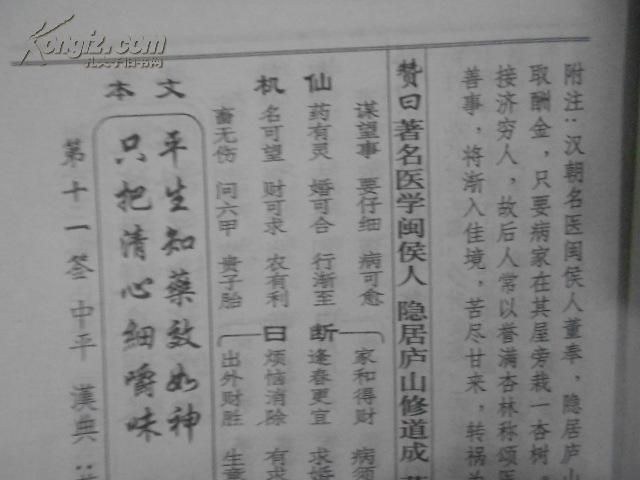 附注：汉朝名医闽侯人董奉，隐居庐山
取酬金，只要病家在其屋旁栽一杏树，
接济穷人，故后人常以誉满杏林称颂医
善事，将渐入佳境，苦尽甘来，转祸为
赞曰 著名医学闽侯人 隐居庐山修道成
仙机
谋望事 要仔细 病可愈
药有灵 婚可合 行渐至
名可望 财可求 农有利
畜无伤 问六甲 贵子胎
断曰
家和得财 病须
逢春更宜 求婚
烦恼消除 有求
出外财胜 生意
文本
平生知藥效如神
只把清心細嚼味
第十一签 中平 漢典：
Kongfz.com
孔夫子旧书网